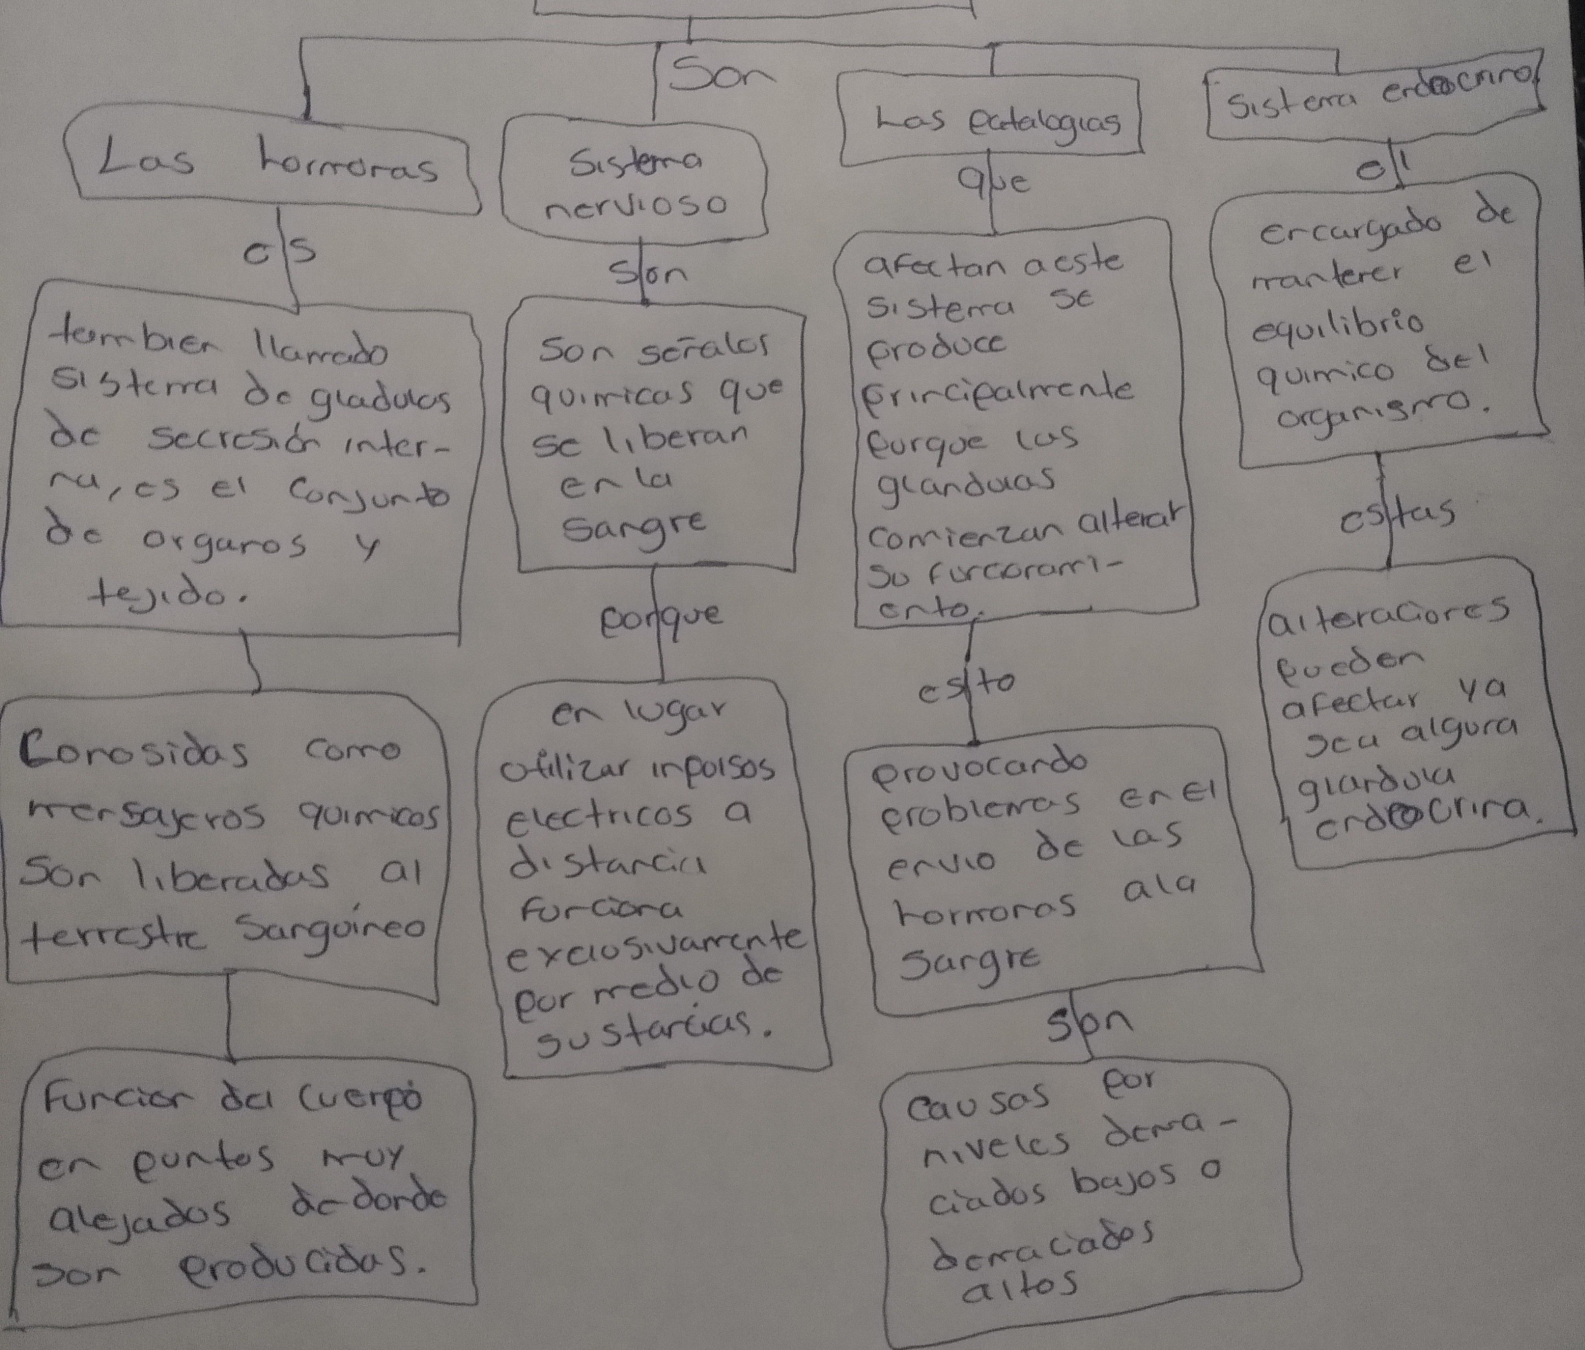 Son
Las hormonas
es
tambien llamado
sistema de gladulas
de secresión inter-
na, es el conjunto
de organos y
tejido.
Conosidas como
mensajeros quimicos
Son liberadas al
terrestre Sanguíneo
Funcion del cuerpo
en puntos muy
alejados de donde
son producidas.
Sistema
nervioso
son
Son señales
quimicas que
se liberan
en la
Sangre
porque
en lugar
utilizar inpulsos
electricos a
distancia
funciona
exclusivamente
por medio de
sustancias.
Las patalogias
que
afectan a este
sistema se
produce
principalmente
porque las
glanduas
comienzan alterar
su funconami-
ento.
esto
provocando
problemas en El
envio de las
hormonas ala
Sangre
son
causas por
niveles dema-
ciados bajos o
demaciados
altos
Sistema endocrino
el
encargado de
mantener el
equilibrio
quimico del
organismo.
estas
alteraciones
pueden
afectar ya
sea alguna
glandula
endocrina.